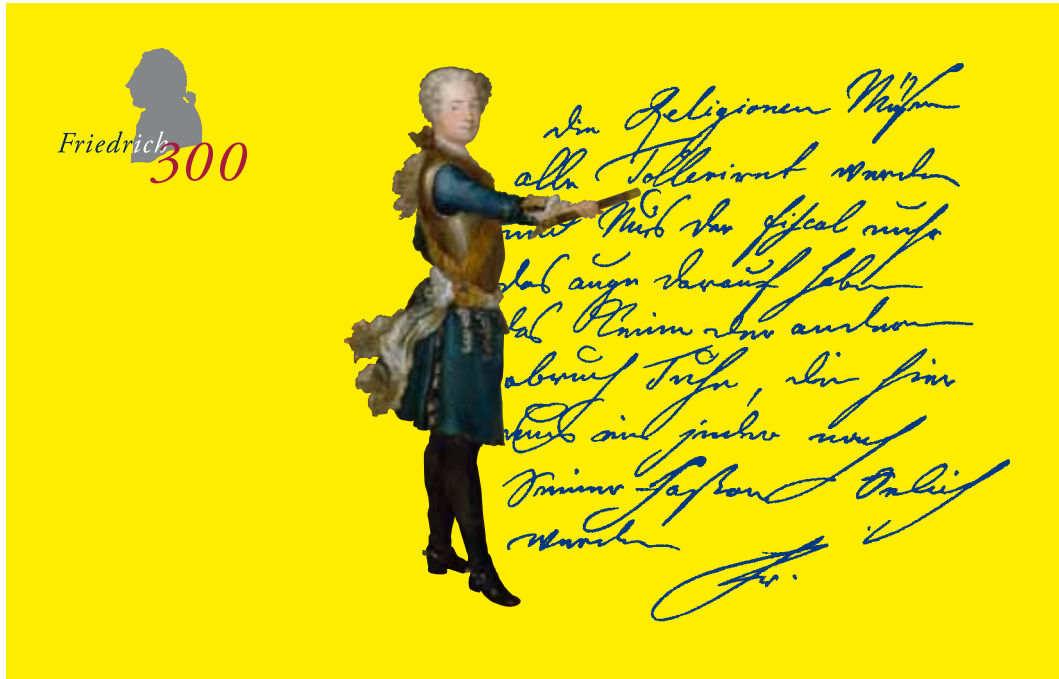 Friedrich
300
die Religionen Müsen
alle Tolleriret werden
und Mus der fiscal nuhr
das auge darauf haben
das Keine der andern
abruch Tuhe, den hier
mus ein jeder nach
Seiner Faßon Selich
werden
Fr.